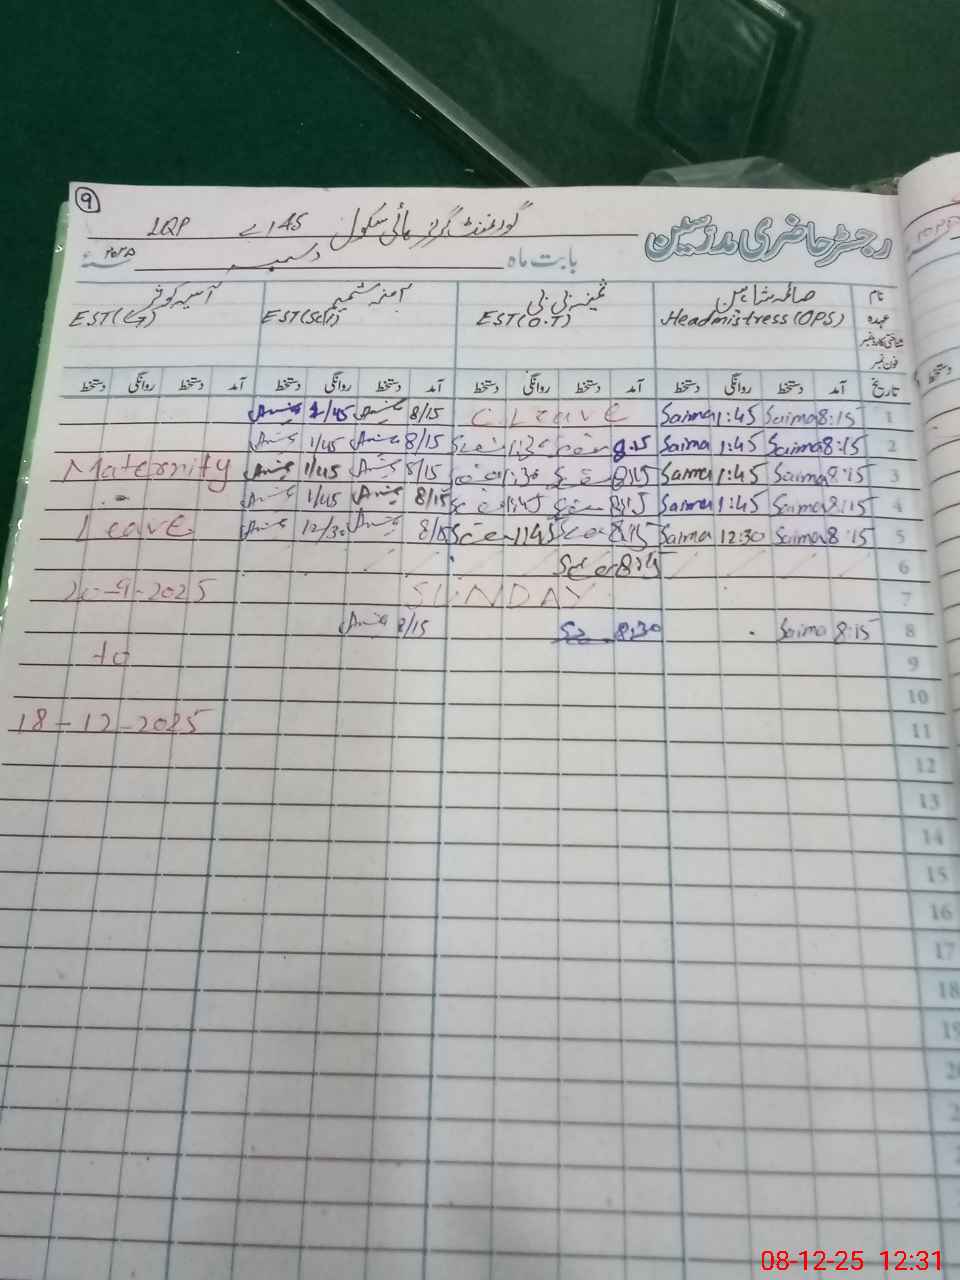 9
گورنمنٹ گرلز ہائی سکول 145 اے 1QP
رجسٹر حاضری مدرسین
بابت ماہ دسمبر ۲۰۲۵
نام صائمہ شاہین ثمینہ بی بی آمنہ شمیم آسیہ کوثر
عہدہ Headmistress (OPS) EST (O.T) EST (Sci)
شناختی کارڈ نمبر
فون نمبر
تاریخ آمد دستخط روانگی دستخط آمد دستخط روانگی دستخط آمد دستخط روانگی دستخط آمد دستخط روانگی دستخط
1 8:15 Saima 1:45 Saima C Leave 8/15 1/45
2 8:15 Saima 1:45 Saima 8:15 1:30 8/15 1/45
3 8:15 Saima 1:45 Saima 8:15 1:30 8/15 1/45 Maternity
4 8:15 Saima 1:45 Saima 8:15 1:45 8/15 1/45
5 8:15 Saima 12:30 Saima 8:15 1:45 8/15 12/30 Leave
6 8:15
7 SUNDAY
8 8:15 Saima 8:30 8/15
9 to
10
11 18-12-2025
12
13
14
15
16
17
18
08-12-25 12:31